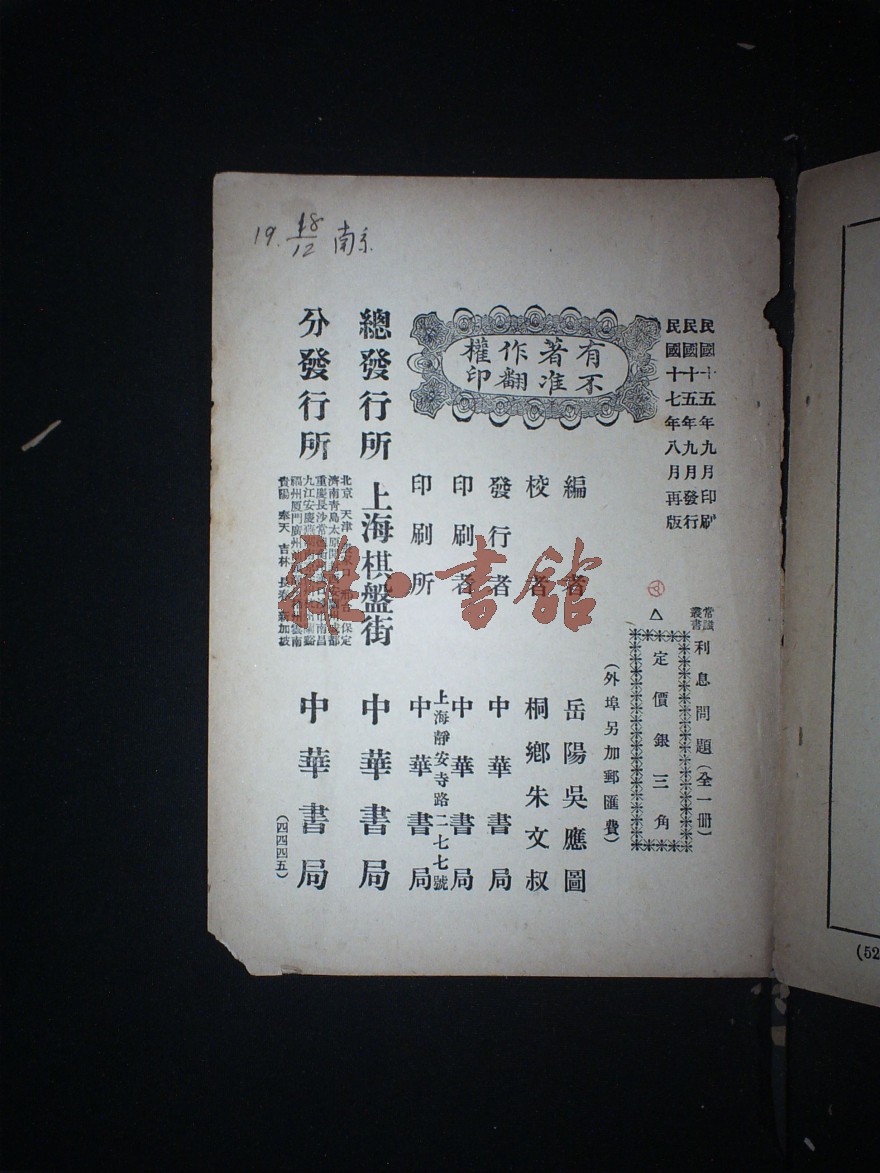 19. 18/12 南京
民國十五年九月印刷
民國十五年九月發行
民國十七年八月再版
常識叢書 利息問題(全一册)
△定價銀三角
(外埠另加郵匯費)
有著作權
不准翻印
編者 岳陽吳應圖
校者 桐鄉朱文叔
發行者 中華書局
印刷者 中華書局
上海靜安寺路二七七號
印刷所 中華書局
總發行所 上海棋盤街 中華書局
分發行所 中華書局
北京 天津 保定
濟南 青島 太原
重慶 長沙 南昌
九江 安慶
福州 厦門 廣州 雲南
貴陽 奉天 吉林 新加坡
(四四四五)
雜·書館
(52